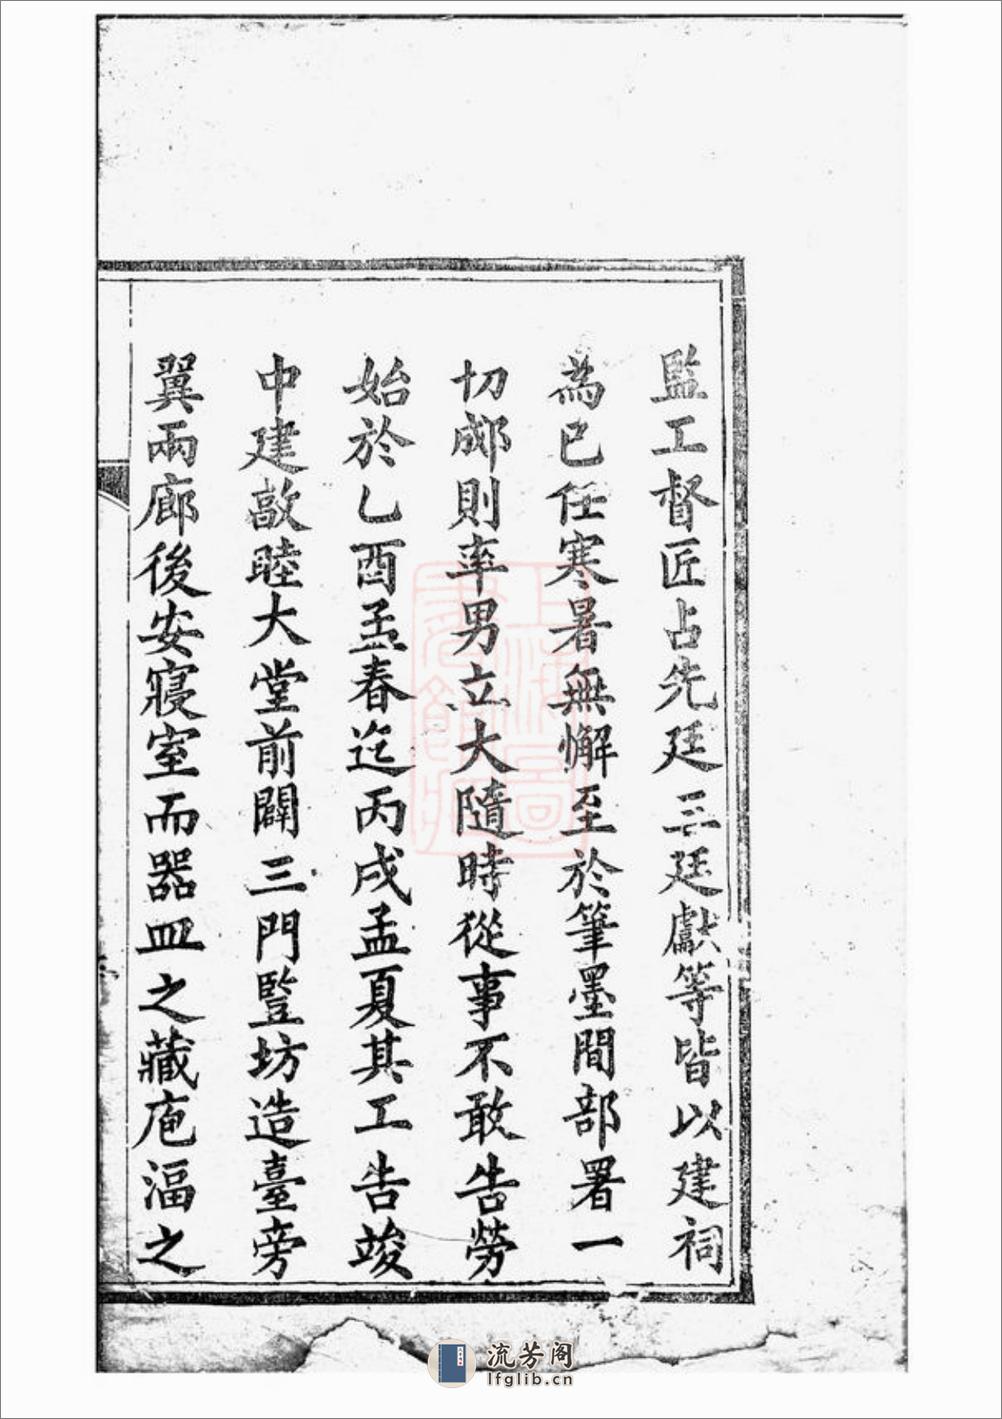 監工督匠占先廷三廷獻等皆以建祠
為己任寒暑無懈至於筆墨間部署一
切郕則率男立大隨時從事不敢告勞
始於乙酉孟春迄丙戌孟夏其工告竣
中建敵睦大堂前闢三門豎坊造臺旁
翼兩廊後安寢室而器皿之藏庖湢之
上海圖
書館藏
流芳阁
lfglib.cn